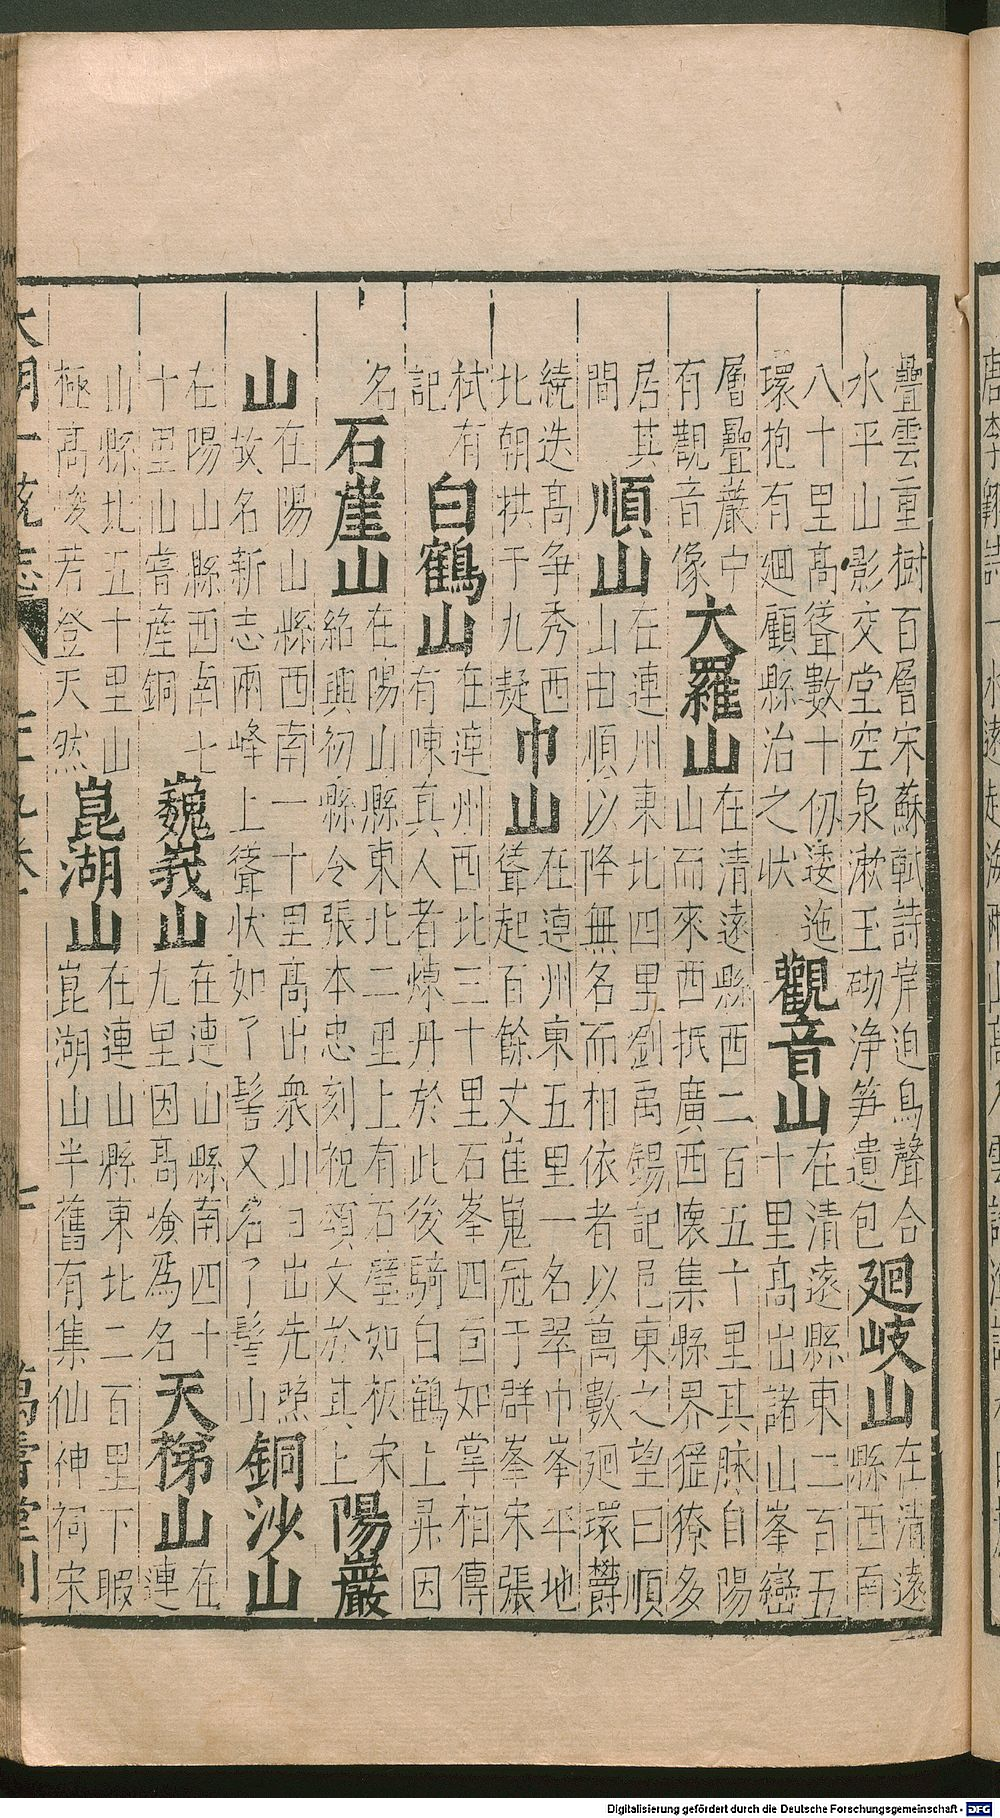 疊雲重樹百層宋蘇軾詩岸迫鳥聲合
水平山影交堂空泉漱玉砌淨筍遺包
廻岐山
在清遠
縣西南
八十里高聳數十仞逶迤
環抱有廻顧縣治之狀
觀音山
在清遠縣東二百五
十里高出諸山峯巒
層疊巖中
有觀音像
大羅山
在清遠縣西二百五十里其脉自陽
山而來西抵廣西懷集縣界猺獠多
居其
間
順山
在連州東北四里劉禹錫記邑東之望曰順
山由順以降無名而相依者以萬數廻環欝
繞迭高争秀西
北朝拱于九疑
巾山
在連州東五里一名翠巾峯平地
聳起百餘丈崔嵬冠于群峯宋張
栻有
記
白鶴山
在連州西北三十里石峯四面如掌相傳
有陳真人者煉丹於此後騎白鶴上昇因
名
石崖山
在陽山縣東北二里上有石壁如板宋
紹興初縣令張本忠刻祝頌文於其上
陽巖
山
在陽山縣西南一十里高出衆山日出先照
故名新志兩峰上聳狀如了髻又名了髻山
銅沙山
在陽山縣西南七
十里山嘗産銅
巍峩山
在連山縣南四十
九里因高險爲名
天梯山
在
連
山縣北五十里山
極高峻若登天然
崑湖山
在連山縣東北二百里下瞰
崑湖山半舊有集仙神祠宋
大明一統志
萬壽堂刊
Digitalisierung gefördert durch die Deutsche Forschungsgemeinschaft - DFG